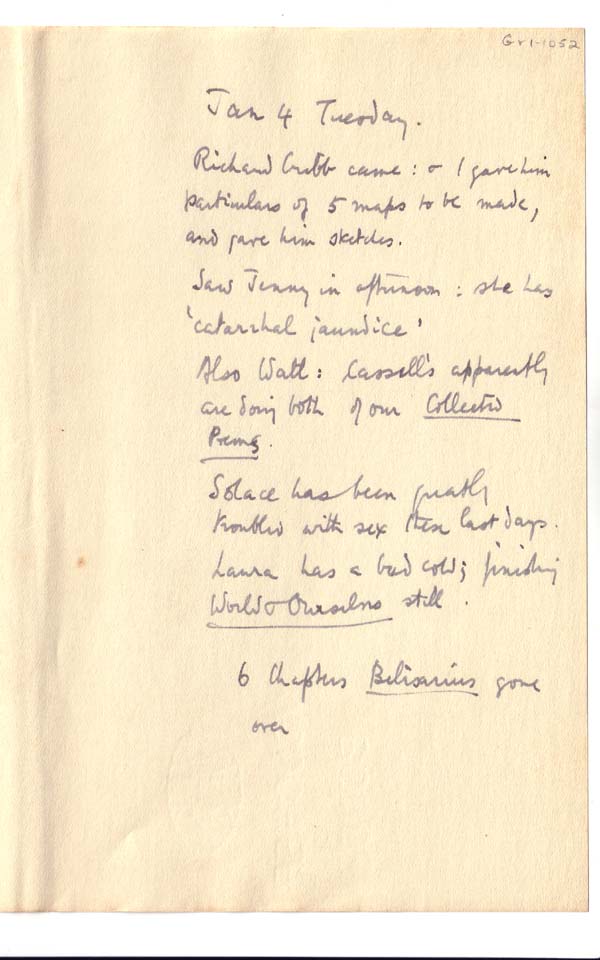 Gr1-1052
Jan 4 Tuesday.
Richard Cubb came : & I gave him
particulars of 5 maps to be made,
and gave him sketches.
Saw Jenny in afternoon : she has
'catarrhal jaundice'
Also Watt : Cassell's apparently
are doing both of our Collected
Poems.
Solace has been greatly
troubled with sex these last days.
Laura has a bad cold; finishing
World & Ourselves still .
6 Chapters Belisarius gone
over